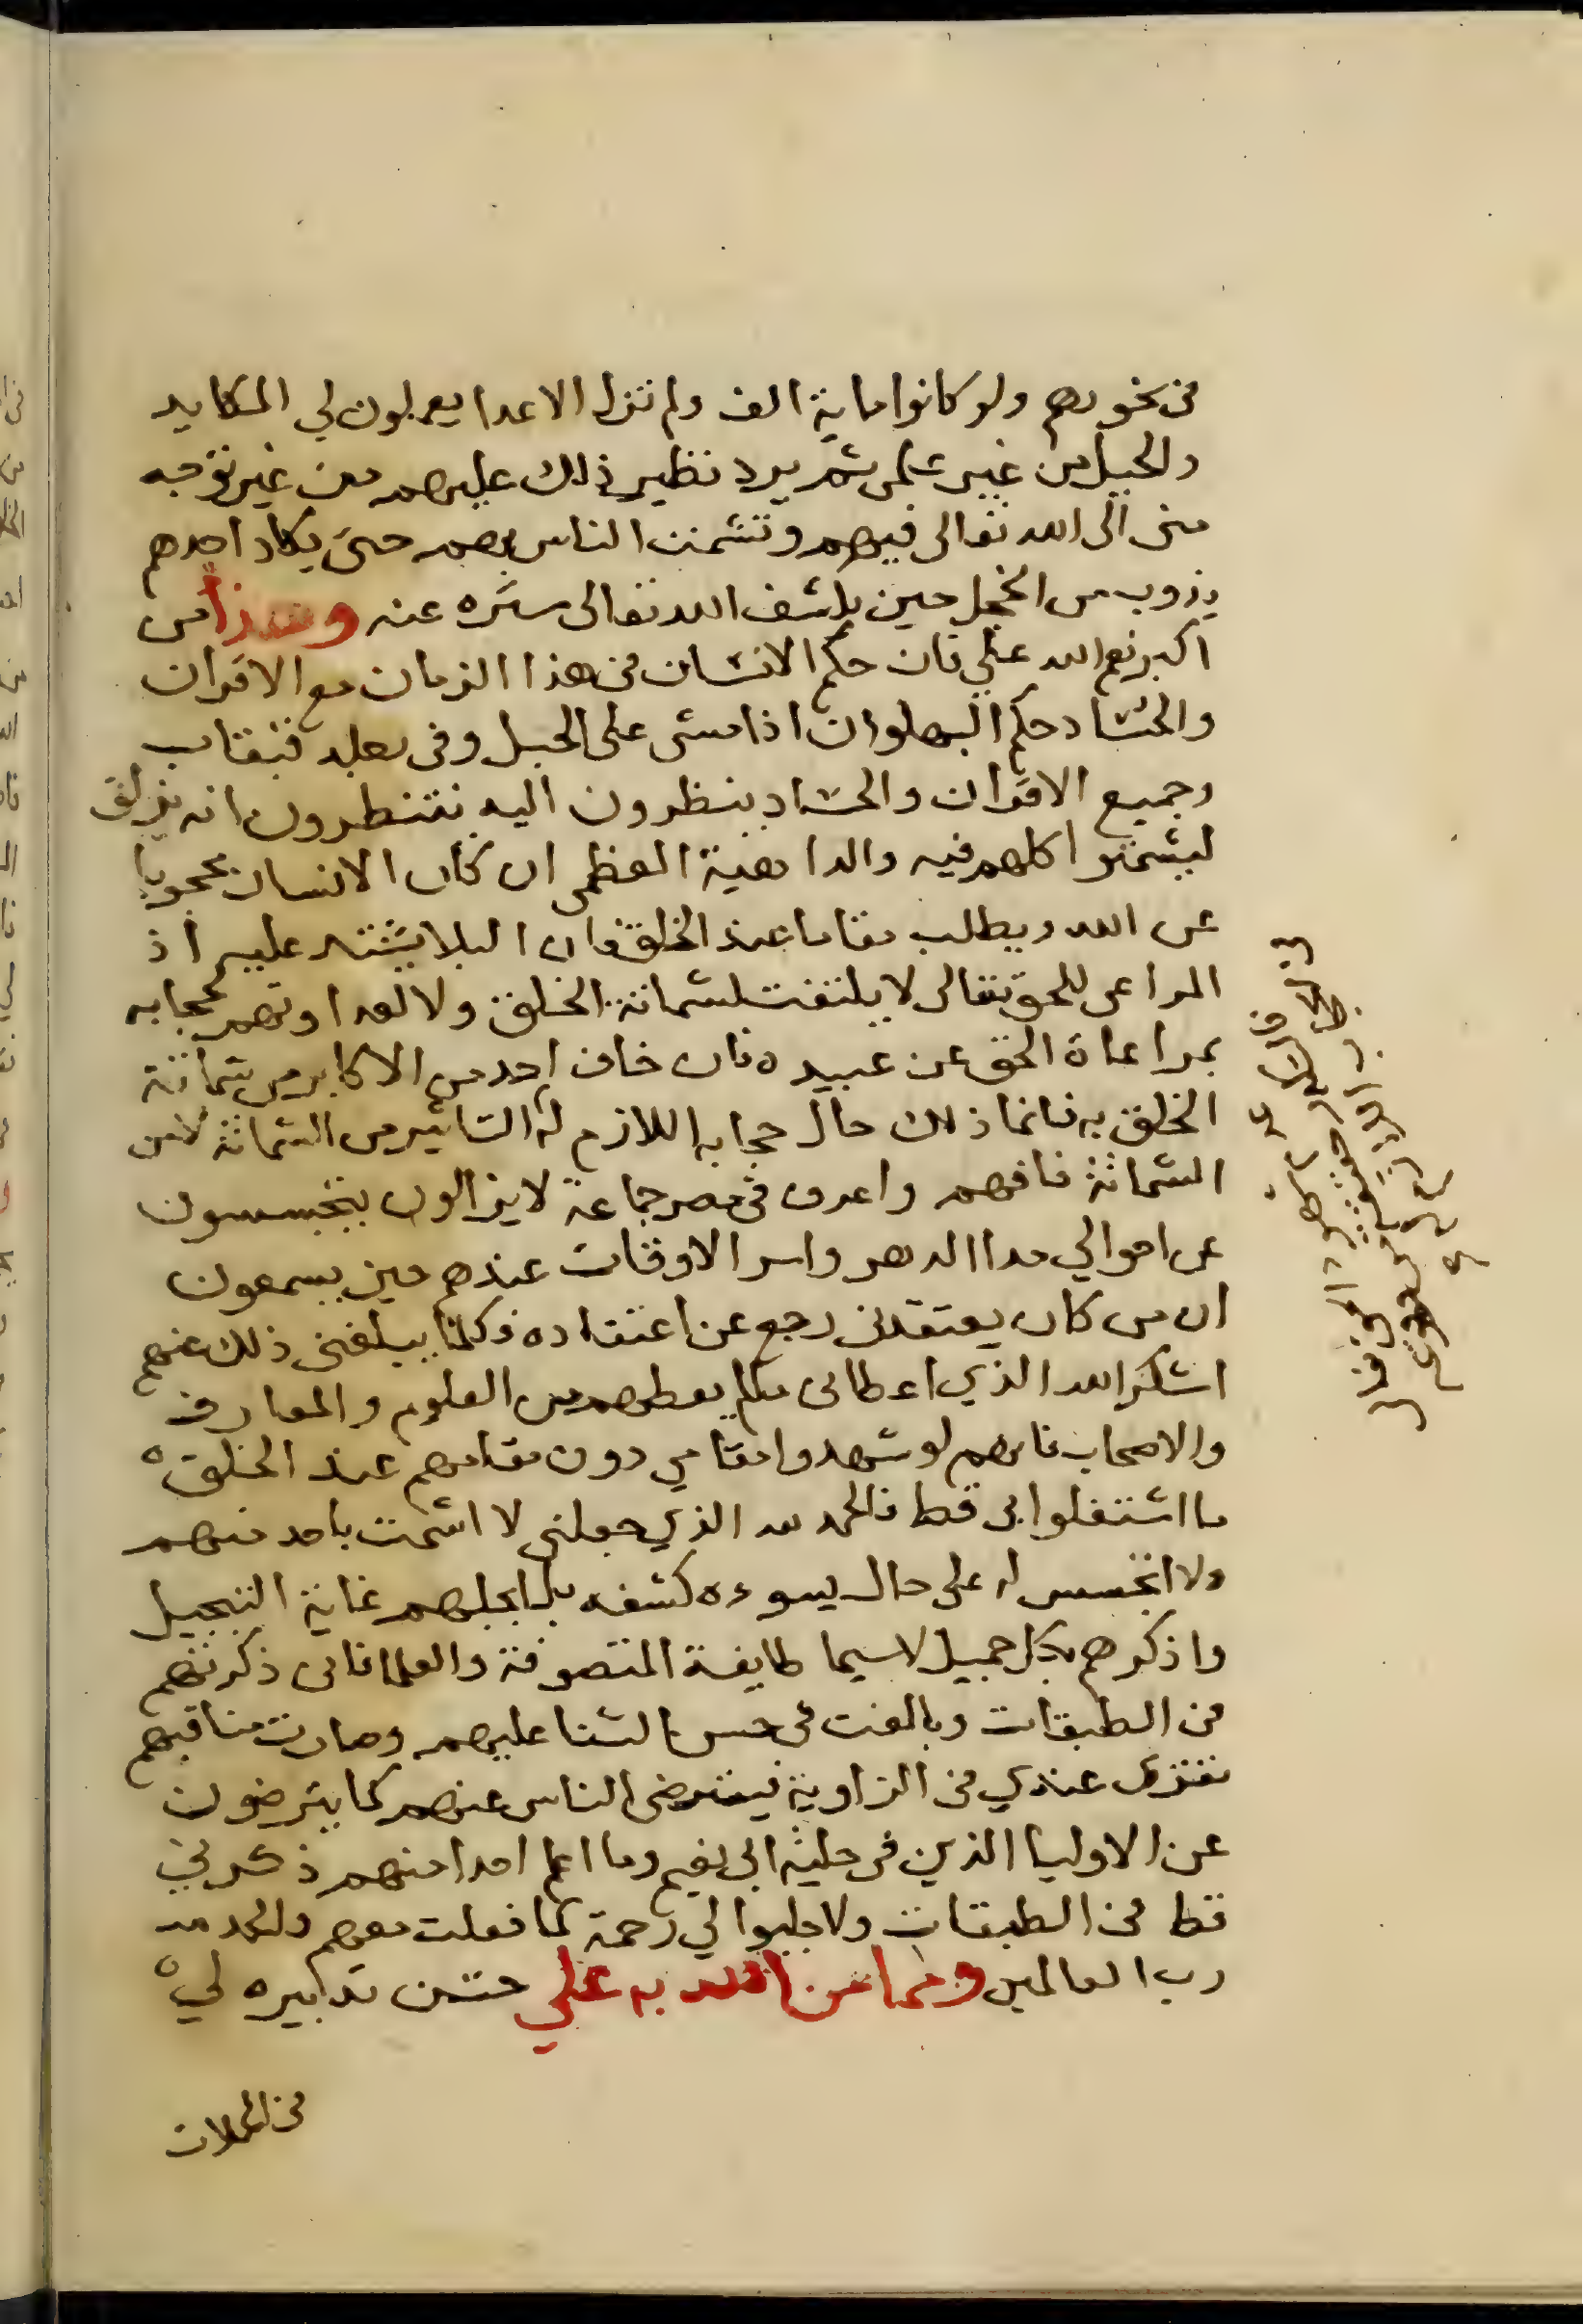 في نحورهم ولو كانوا ماية الف ولم تزل الاعدا يعملون لي المكايد
والحيل من غير علمي ثم يرد نظير ذلك عليهم من غير توجه
مني الى الله تعالى فيهم وتشمت الناس بهم حتى يكاد احدهم
يذوب من الخجل حين يكشف الله تعالى ستره عنه وهذا من
اكبر نعم الله علي فان حكم الانسان في هذا الزمان مع الاقران
والحساد حكم البهلوان اذا مشى على الحبل وفي رجله قبقاب
وجميع الاقران والحساد ينظرون اليه ينتظرون انه يزلق
ليشمتوا كلهم فيه والداهية العظمى ان كان الانسان محجوبا
عن الله ويطلب مقاما عند الخلق فان البلا يشتد عليه اذ
المراعي للحق تعالى لا يلتفت لشماتة الخلق ولا لعداوتهم لحجابه
بمراعاة الحق عن عبيده فان خاف احد من الاكابر من شماتة
الخلق به فانما ذلك حال حجابه اللازم له التاثير من الشماتة لا من
الشماتة فافهم واعرف في مصر جماعة لا يزالون يتجسسون
عن احوالي مدا الدهر واسر الاوقات عندهم حين يسمعون
ان من كان يعتقدني رجع عن اعتقاده فكلما يبلغني ذلك عنهم
اشكر الله الذي اعطاني ما لم يعطهم من العلوم والمعارف
والاصحاب فانهم لو شهدوا مقامي دون مقامهم عند الخلق
ما اشتغلوا بي قط فالحمد لله الذي جعلني لا اشمت باحد منهم
ولا اتجسس له على حال يسوءه كشفه بل ابجلهم غاية التبجيل
واذكرهم بكل جميل لاسيما طايفة المتصوفة والعلما فاني ذكرتهم
في الطبقات وبالغت في حسن الثنا عليهم وصارت مناقبهم
تقرى عندي في الزاوية فيترضى الناس عنهم كما يترضون
عن الاوليا الذين في حلية ابي نعيم وما اعلم احدا منهم ذكرني
قط في الطبقات ولا جلبوا لي رحمة كما فعلت معهم والحمد لله
رب العالمين ومما من الله به علي حسن تدبيره لي
في الحملات